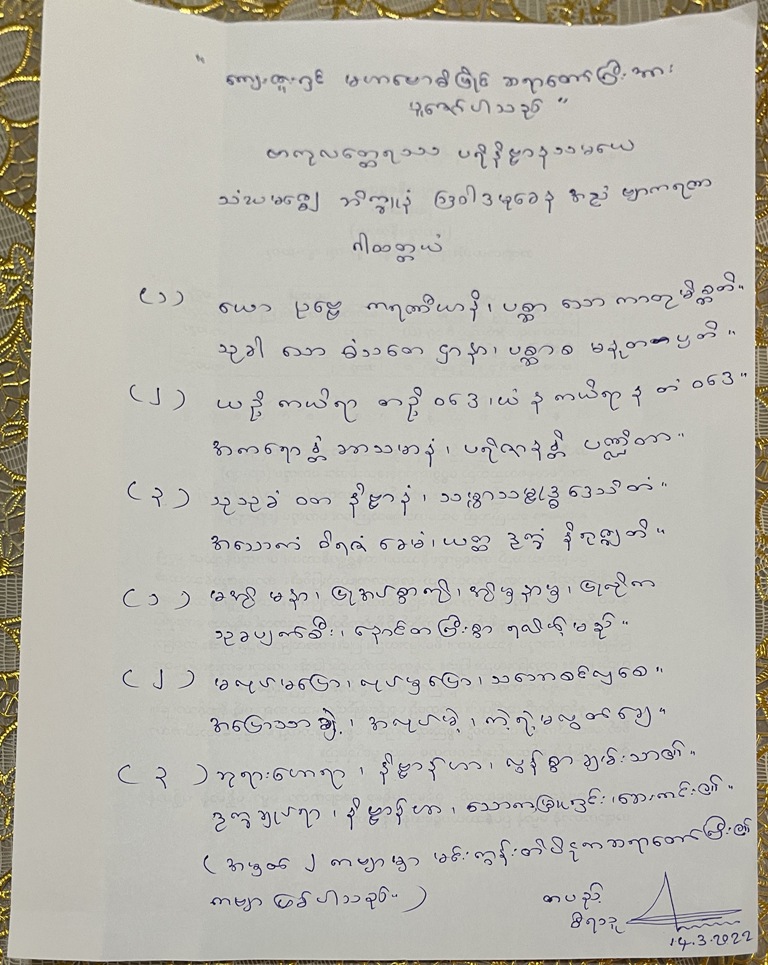 " ကျေးဇူးရှင် မဟာဗောဓိမြိုင် ဆရာတော်ကြီးအား
ပူဇော်ပါသည် "
ဗာကုလတ္ထေရဿ ပရိနိဗ္ဗာနသမယေ
သံဃမဇ္ဈေ ဘိက္ခူနံ ဩဝါဒမုခေန အညံ ဗျာကရဏာ
ဂါထတ္တယံ
(၁) ယော ပုဗ္ဗေ ကရဏီယာနိ၊ ပစ္ဆာ သော ကာတုမိစ္ဆတိ။
သုခါ သော ဓံသတေ ဌာနာ၊ ပစ္ဆာ စ မနုတပ္ပတိ။
(၂) ယဉှိ ကယိရာ တဉှိ ဝဒေ၊ ယံ န ကယိရာ န တံ ဝဒေ။
အကရောန္တံ ဘာသမာနံ၊ ပရိဇာနန္တိ ပဏ္ဍိတာ။
(၃) သုသုခံ ဝတ နိဗ္ဗာနံ၊ သမ္မာသမ္ဗုဒ္ဓဒေသိတံ။
အသောကံ ဝိရဇံ ခေမံ၊ ယတ္ထ ဒုက္ခံ နိရုဇ္ဈတိ။
(၁)
သုခပျက်စီး၊ နောင်တကြီးစွာ ရလိမ့်မည်။
(၂) မလုပ်မပြော၊ လုပ်မှပြော၊ သဘောစင်လှစေ။
အပြောသာချဲ့၊ အလုပ်မဲ့၊ ကဲ့ရဲ့မလွတ်ချေ။
(၃) ဘုရားဟောရာ၊ နိဗ္ဗာန်ဟာ၊ လွန်စွာချမ်းသာ၏။
ဒုက္ခချုပ်ရာ၊ နိဗ္ဗာန်ဟာ၊ သောကမြူကင်း၊ ဘေးကင်း၏။
(အမှတ် ၂ ကဗျာမှာ မင်းကွန်းတိပိဋကဆရာတော်ကြီး၏
ကဗျာ ဖြစ်ပါသည်။)
တပည့်
14.3.2022